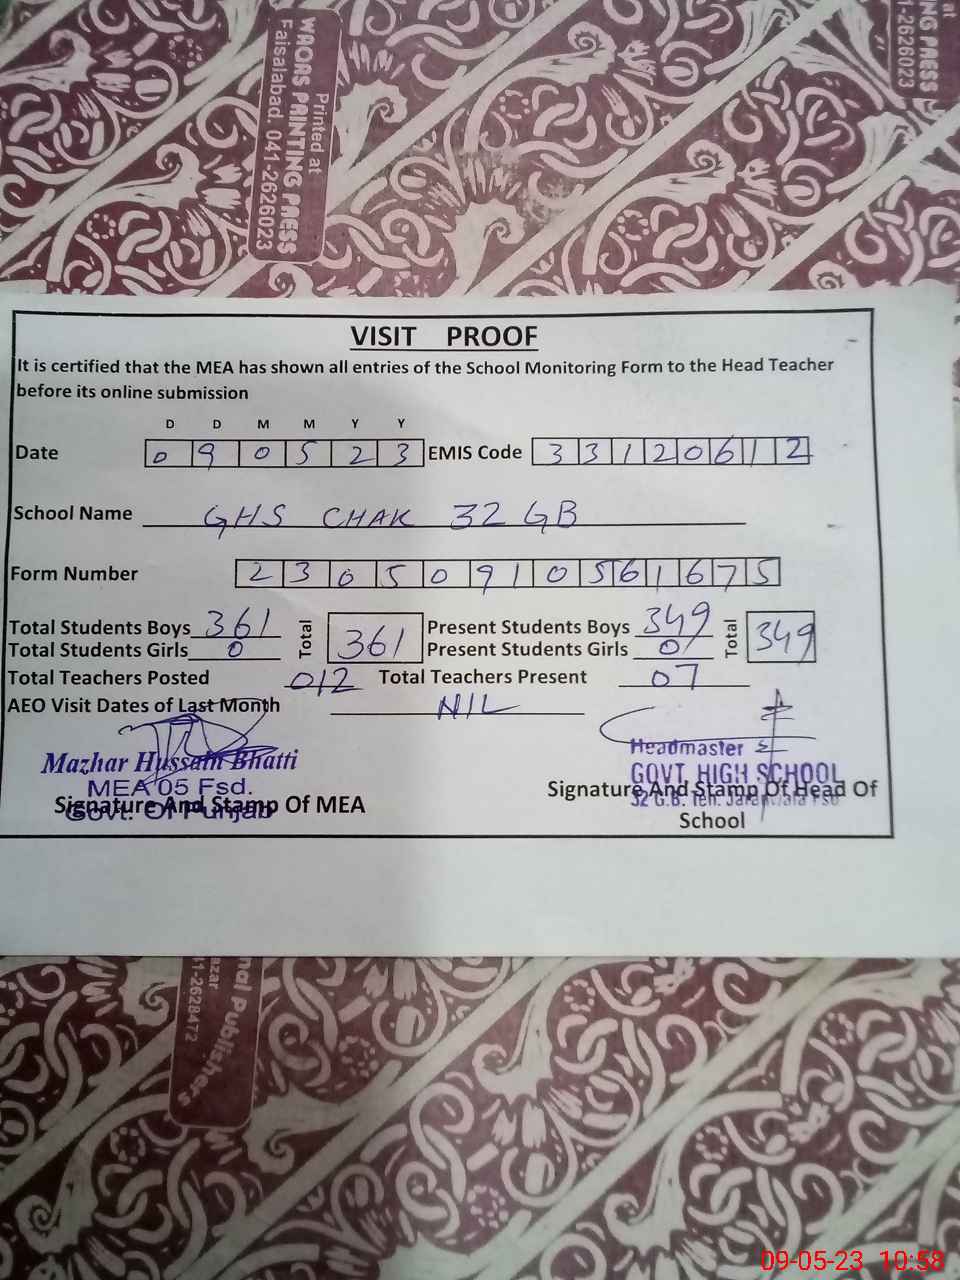 Printed at
WAQRS PAINTING PRESS
Faisalabad. 041-2626023
at
NG PRESS
1-2626023
VISIT PROOF
It is certified that the MEA has shown all entries of the School Monitoring Form to the Head Teacher
before its online submission
D D M M Y Y
Date 0 9 0 5 2 3 EMIS Code 3 3 1 2 0 6 1 2
School Name GHS CHAK 32 GB
Form Number 2 3 0 5 0 9 1 0 5 6 1 6 7 5
Total Students Boys 361 Total 361 Present Students Boys 349 Total 349
Total Students Girls 0 Present Students Girls 0
Total Teachers Posted 012 Total Teachers Present 07
AEO Visit Dates of Last Month NIL
Mazhar Hussain Bhatti
MEA 05 Fsd.
Govt. Of Punjab
Signature And Stamp Of MEA
Headmaster
GOVT. HIGH SCHOOL
32 G.B. Teh. Jaranwala Fsd
Signature And Stamp Of Head Of
School
nal Publishers
azar
11-2628472
09-05-23 10:58